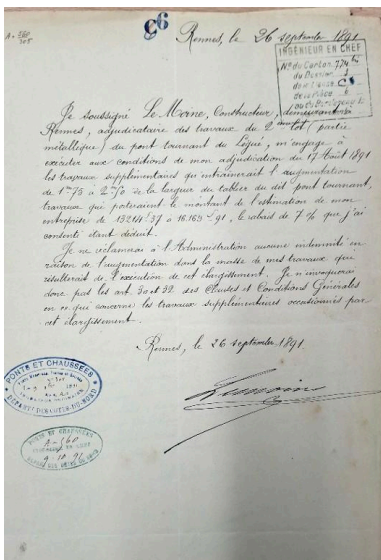 A-560
C6
Rennes, le 26 septembre 1891
INGÉNIEUR EN CHEF
N° du Carton 774
du Dossier 3
de la Liasse C
de la Pièce 6
Je soussigné Le Moine, Constructeur, demeurant à
Rennes, adjudicataire des travaux du 2e lot (partie
métallique) du pont tournant du Légué, m'engage à
exécuter aux conditions de mon adjudication du 17 Août 1891
les travaux supplémentaires qu'entraînerait l'augmentation
de 1m75 à 2m70 de la largeur du tablier du dit pont tournant,
travaux qui porteraient le montant de l'estimation de mon
entreprise de 13214f37 à 16.165f91, le rabais de 7% que j'ai
consenti étant déduit.
Je ne réclamerai à l'Administration aucune indemnité en
raison de l'augmentation dans la masse de mes travaux qui
résulterait de l'exécution de cet élargissement. Je n'invoquerai
donc pas les art. 30 et 32 des Clauses et Conditions Générales
en ce qui concerne les travaux supplémentaires occasionnés par
cet élargissement.
Rennes, le 26 septembre 1891
PONTS ET CHAUSSÉES
DÉPART. DES CÔTES-DU-NORD
PONTS ET CHAUSSÉES
A-560
9.10.91